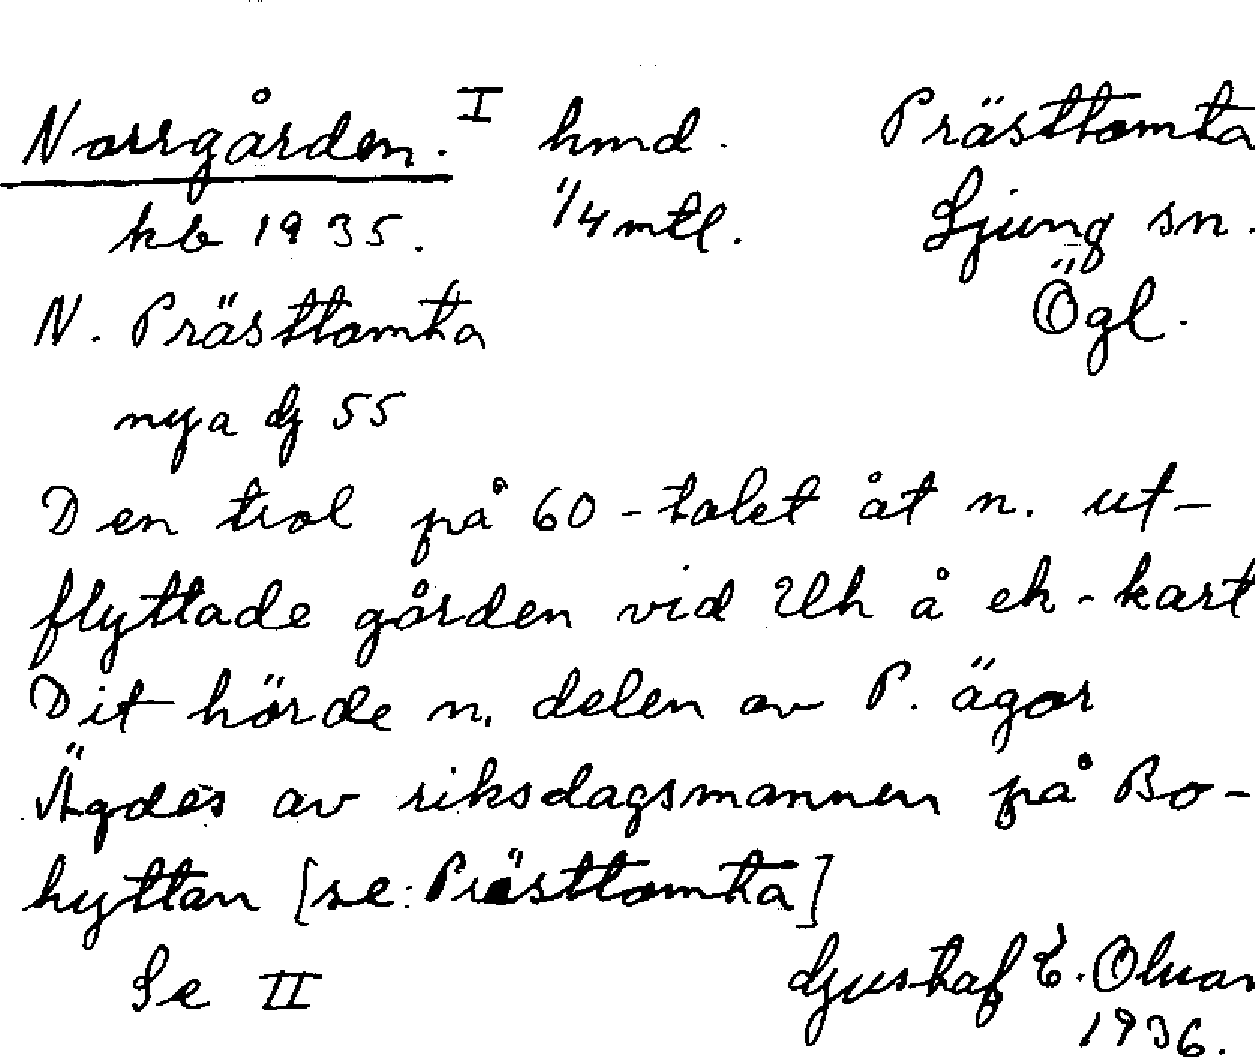 Norrgården. I hmd. Prästtomta
kb 1935. 1/4 mtl. Ljung sn.
N. Prästtomta Ögl.
nya dj 55
Den trol på 60-talet åt n. ut-
flyttade gården vid å ek-kart
Dit hörde n. delen av P. ägor
Ägdes av riksdagsmannen på Bo-
hyttan [se: Prästtomta]
Se II Gustaf E. Olvan
1936.